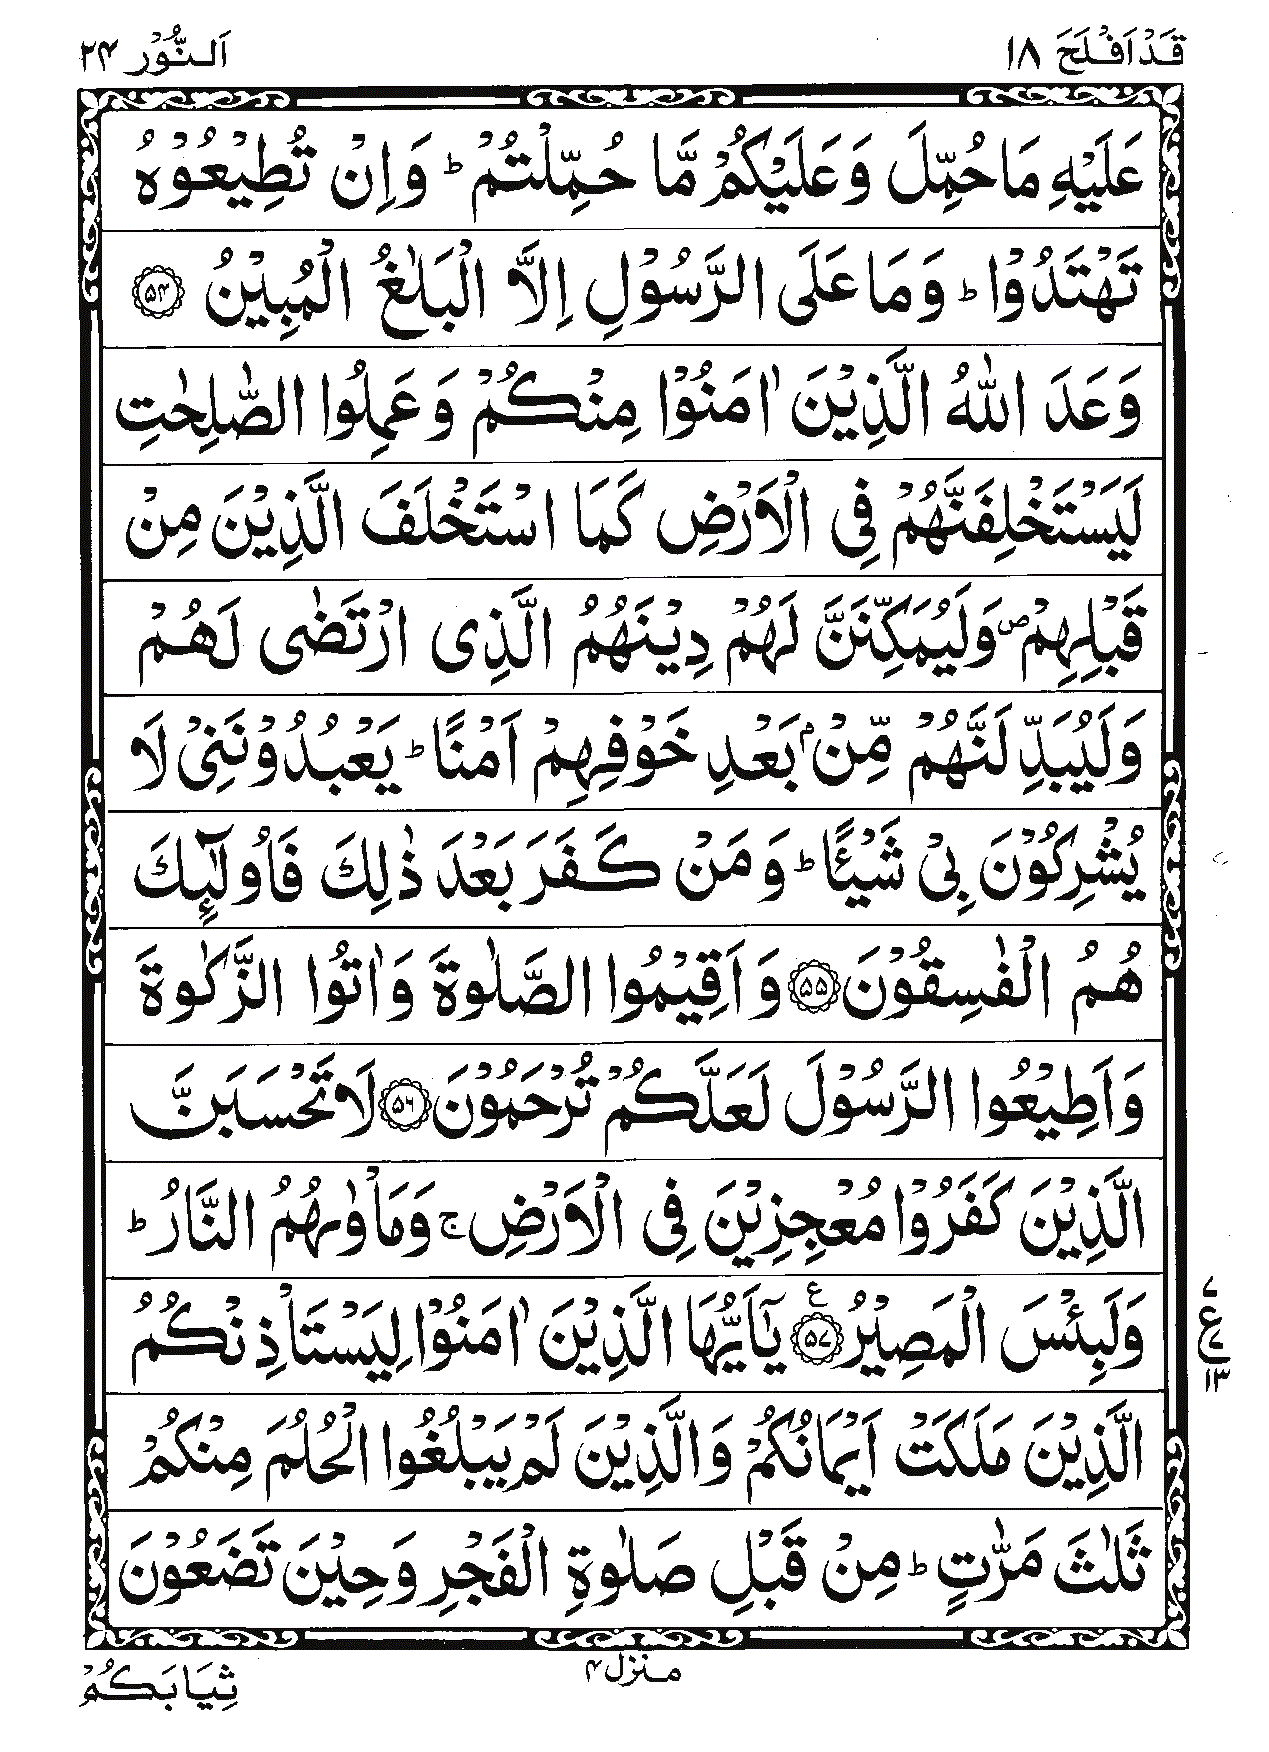 قَدْ اَفْلَحَ ۱۸
اَلنُّوْر ۲۴
عَلَيْهِ مَا حُمِّلَ وَعَلَيْكُمْ مَّا حُمِّلْتُمْ ؕ وَاِنْ تُطِيْعُوْهُ
تَهْتَدُوْا ؕ وَمَا عَلَى الرَّسُوْلِ اِلَّا الْبَلٰغُ الْمُبِيْنُ ﴿۵۴﴾
وَعَدَ اللّٰهُ الَّذِيْنَ اٰمَنُوْا مِنْكُمْ وَعَمِلُوا الصّٰلِحٰتِ
لَيَسْتَخْلِفَنَّهُمْ فِى الْاَرْضِ كَمَا اسْتَخْلَفَ الَّذِيْنَ مِنْ
قَبْلِهِمْ ۪ وَلَيُمَكِّنَنَّ لَهُمْ دِيْنَهُمُ الَّذِى ارْتَضٰى لَهُمْ
وَلَيُبَدِّلَنَّهُمْ مِّنْۢ بَعْدِ خَوْفِهِمْ اَمْنًا ؕ يَعْبُدُوْنَنِىْ لَا
يُشْرِكُوْنَ بِىْ شَيْـًٔا ؕ وَمَنْ كَفَرَ بَعْدَ ذٰلِكَ فَاُولٰٓئِكَ
هُمُ الْفٰسِقُوْنَ ﴿۵۵﴾ وَاَقِيْمُوا الصَّلٰوةَ وَاٰتُوا الزَّكٰوةَ
وَاَطِيْعُوا الرَّسُوْلَ لَعَلَّكُمْ تُرْحَمُوْنَ ﴿۵۶﴾ لَا تَحْسَبَنَّ
الَّذِيْنَ كَفَرُوْا مُعْجِزِيْنَ فِى الْاَرْضِ ۚ وَمَاْوٰىهُمُ النَّارُ ؕ
وَلَبِئْسَ الْمَصِيْرُ ﴿۵۷﴾ ع يٰۤاَيُّهَا الَّذِيْنَ اٰمَنُوْا لِيَسْتَاْذِنْكُمُ
۷
ع
۱۳
الَّذِيْنَ مَلَكَتْ اَيْمَانُكُمْ وَالَّذِيْنَ لَمْ يَبْلُغُوا الْحُلُمَ مِنْكُمْ
ثَلٰثَ مَرّٰتٍ ؕ مِنْ قَبْلِ صَلٰوةِ الْفَجْرِ وَحِيْنَ تَضَعُوْنَ
منزل ۴
ثِيَابَكُمْ